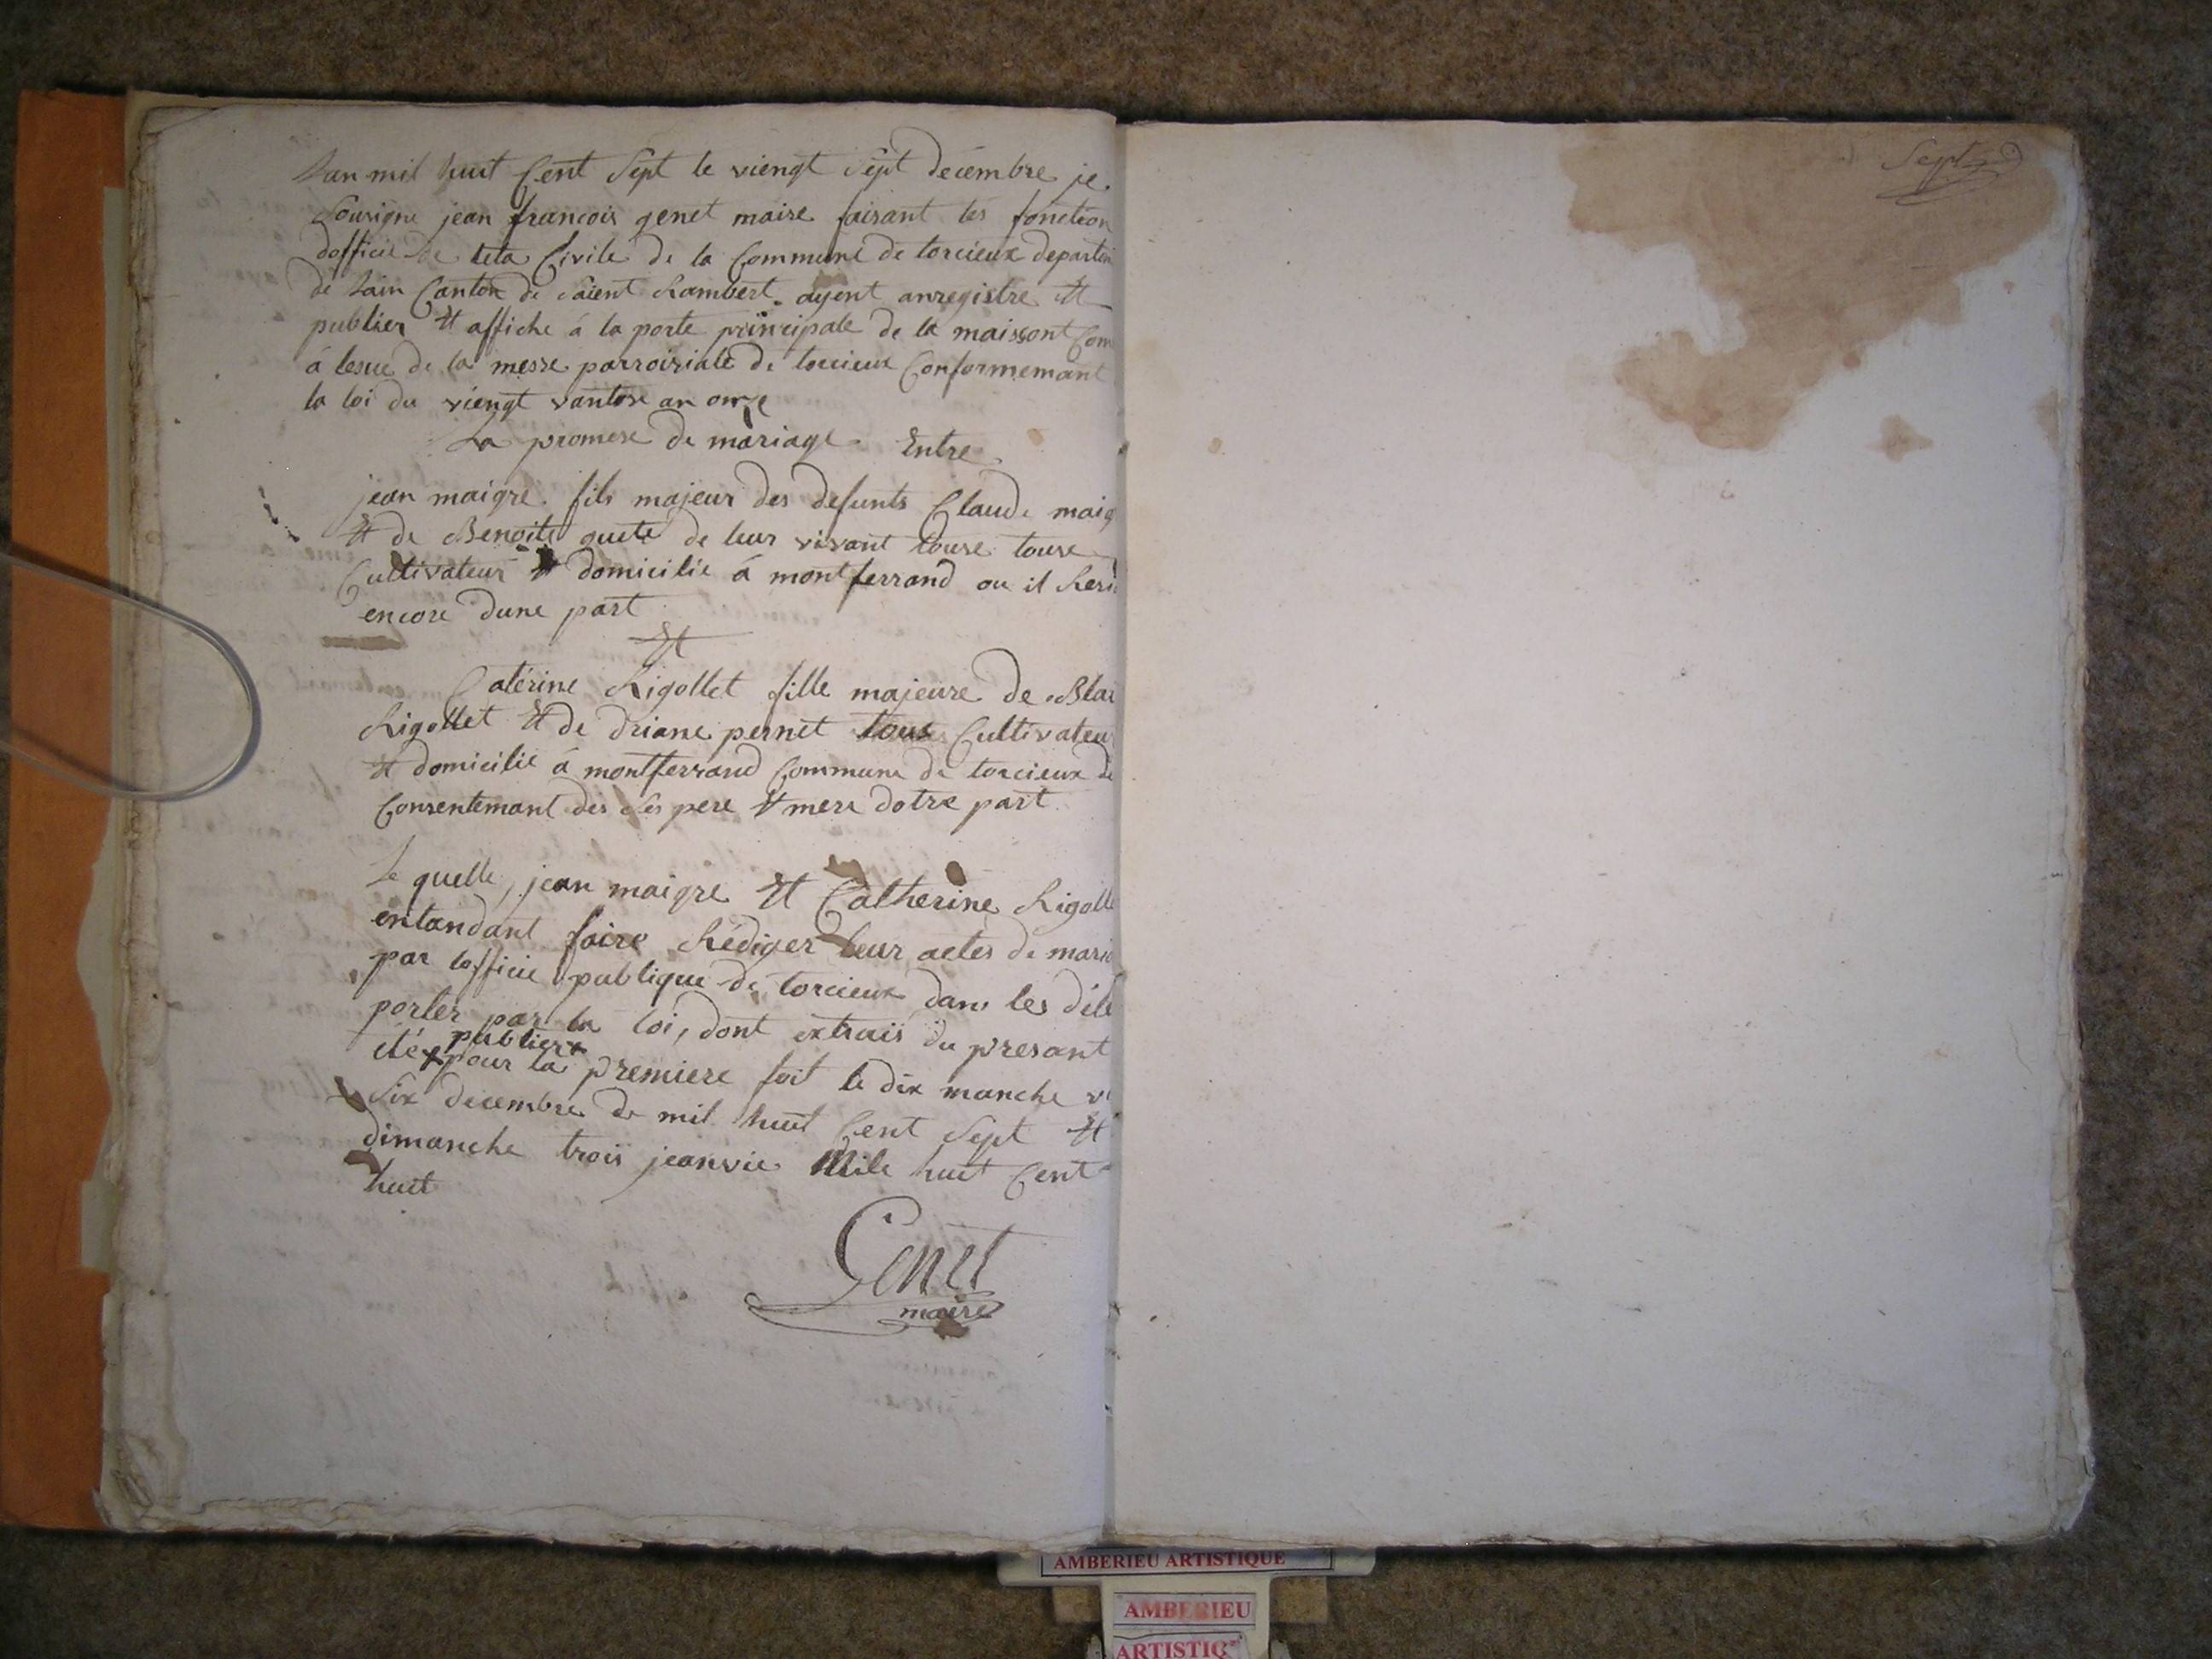 Lan mil huit Cent Sept le viengt Sept decembre je
Sousigne jean francois genet maire faisant les fonction
dofficié de leta Civile de la Commune de torcieux departem
de Lain Canton de saient Rambert. ayent anregistre Et
publier Et affiche á la porte principale de la maissont Com
á lesue de la messe parroissiale de torcieux Conformemant
la loi du viengt vantose an onze
La promese de mariage Entre
jean maigre fils majeur des defunts Claude maig
Et de Benoite quete de leur vivant touse touse
Cultivateur Et domicilié á montferrand ou il Resi
encore dune part
Et
Catérine Rigollet fille majeure de Blai
Rigollet Et de driane pernet tous Cultivateu
Et domicilié á montferrand Commune de torcieux de
Consentemant des Ses pere Et mere dotre part
Le quelle, jean maigre Et Catherine Rigolle
entandant faire Rédiger leur actes de maria
par lofficié publique de torcieux dans les déle
porter par la loi, dont extrais du presant
été x publier x pour la premiere foit le dix manche vi
Six decembre de mil huit Cent Sept Et
dimanche trois jeanvie Mile huit Cent
huit
Genet
maire
Sept
AMBERIEU ARTISTIQUE
AMBERIEU
ARTISTIQ